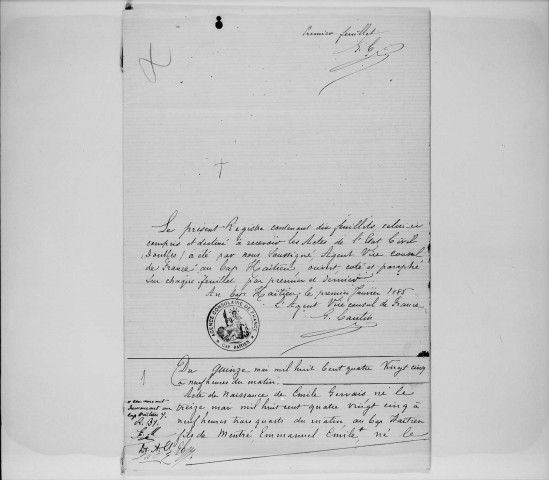 Premier feuillet
Le présent Registre contenant dix feuillets, celui-ci
compris et destiné à recevoir les Actes de l'Etat Civil
(Doubles) a été par nous soussigné, Agent Vice consul
de France au Cap Haïtien, ouvert coté et paraphé
sur chaque feuillet par premier et dernier.
Au Cap Haïtien, le premier Janvier 1885
L'Agent Vice consul de France
AGENCE CONSULAIRE DE FRANCE
CAP HAITIEN
1
Du Quinze mai mil huit Cent quatre Vingt cinq
à neuf heures du matin.
Acte de Naissance de Emile Gervais né le
treize mai mil huit cent quatre vingt cinq à
neuf heures trois quarts du matin au Cap Haïtien
fils de Mentré, Emmanuel Emile + né le